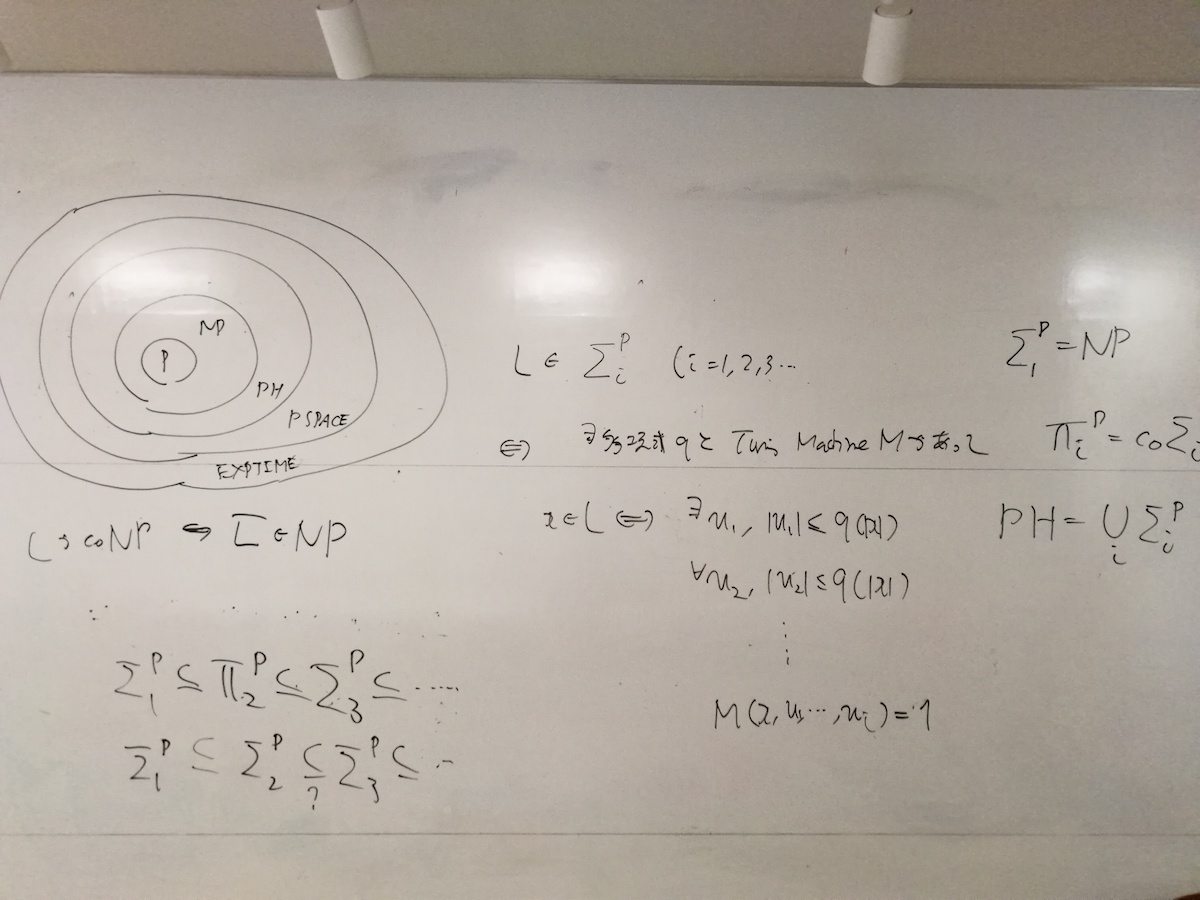 P
NP
PH
PSPACE
EXPTIME
L ∈ coNP ⇔ L̅ ∈ NP
Σ₁ᴾ ⊆ Π₂ᴾ ⊆ Σ₃ᴾ ⊆ ·····
Σ₁ᴾ ⊆ Σ₂ᴾ ⊆ Σ₃ᴾ ⊆ ··
?
L ∈ Σᵢᴾ (i = 1, 2, 3 ···
⇔ ∃多項式 q と Turing Machine M があって
x ∈ L ⇔ ∃u₁, |u₁| ≤ q(|x|)
∀u₂, |u₂| ≤ q(|x|)
⋮
M(x, u₁ ···, uᵢ) = 1
Σ₁ᴾ = NP
Πᵢᴾ = coΣᵢ
PH = ∪ᵢ Σᵢᴾ